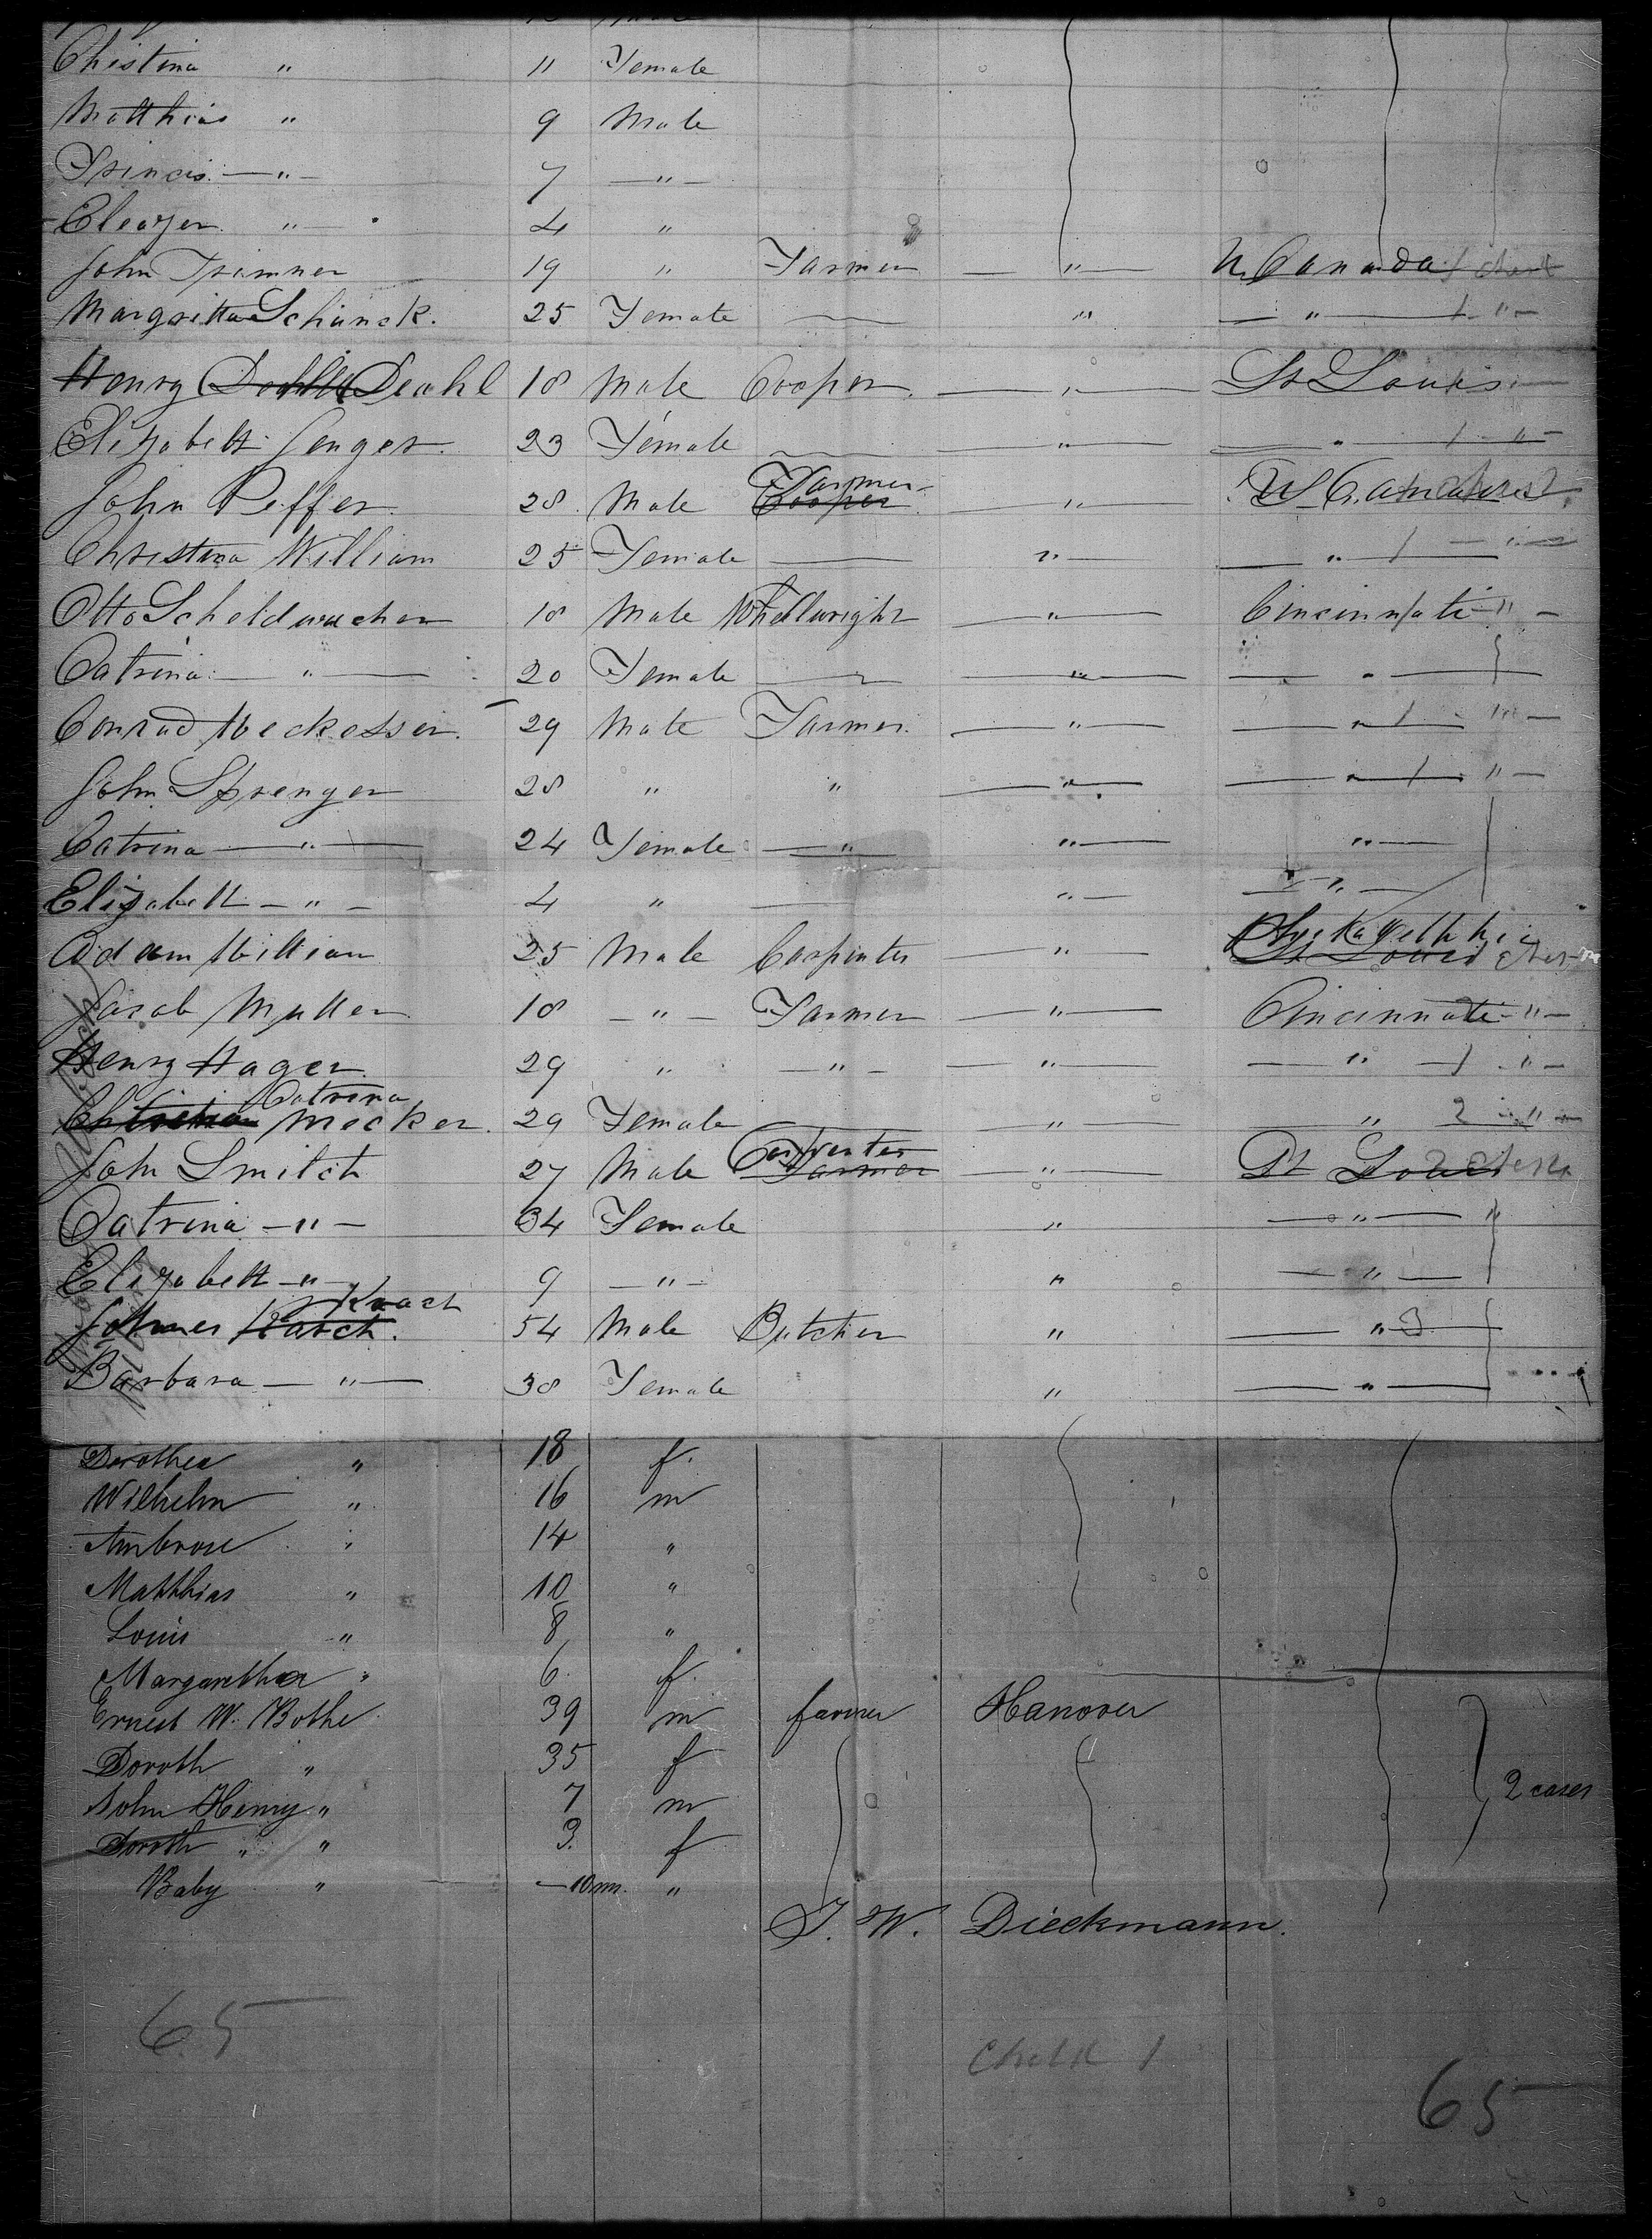 Chistina " 11 Female
Matthias " 9 Male
7 — " —
Eleazer " 4 "
John Trimner 19 " Farmer — " — U. Canada 1 chest
Margritta Schanck. 25 Female — " — " — 1 " —
Henry Deahl 18 Male Cooper — " — St Louis
Elizabett Genger. 23 Female — " — " — 1 " —
John Peffer 28 Male Farmer Cooper — " — U. Canada
Christina William 25 Female — " — " 1 — " —
Otto Scheldwacher 18 Male Whellwright — " — Cincinnati 1 " —
Catrina — " — 20 Female — " — " —
Conrad Meckesser. 29 Male Farmer — " — " 1 " —
John Sprenger 28 " " — " — " 1 " —
Catrina — " — 24 Female — " — " — " —
Elizabett — " — 4 " — " — " —
Adam Willian 25 Male Carpinter — " — St Louis
Jacob Muller 18 — " — Farmer — " — Cincinnati " —
Henry Hager 29 " — " — — " — " — 1 " —
Catrina
Mecker. 29 Female " " 2 " —
John Smitch 27 Male Carpenter Farmer — " — St Louis
Catrina — " — 34 Female " — " — "
Elizabett — " — 9 — " — " — " —
Knach
Karch. 54 Male Butcher " — " 3
Barbara — " — 38 Female " — " —
Dorothea " 18 f.
Wilhelm " 16 m
Ambrose " 14 "
Matthias " 10 "
Louis " 8 "
Margaretha " 6 f.
Ernest W. Bothe 39 m farmer Hanover
Doroth " 35 f
John Henry " 7 m 2 cases
Doroth " " 3. f
Baby " — 10 mn. "
J. W. Dieckmann.
65
65